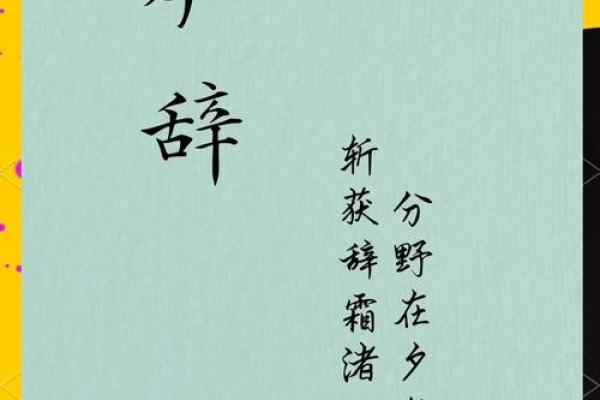 辞
分野在夕
斩获辞霜渚